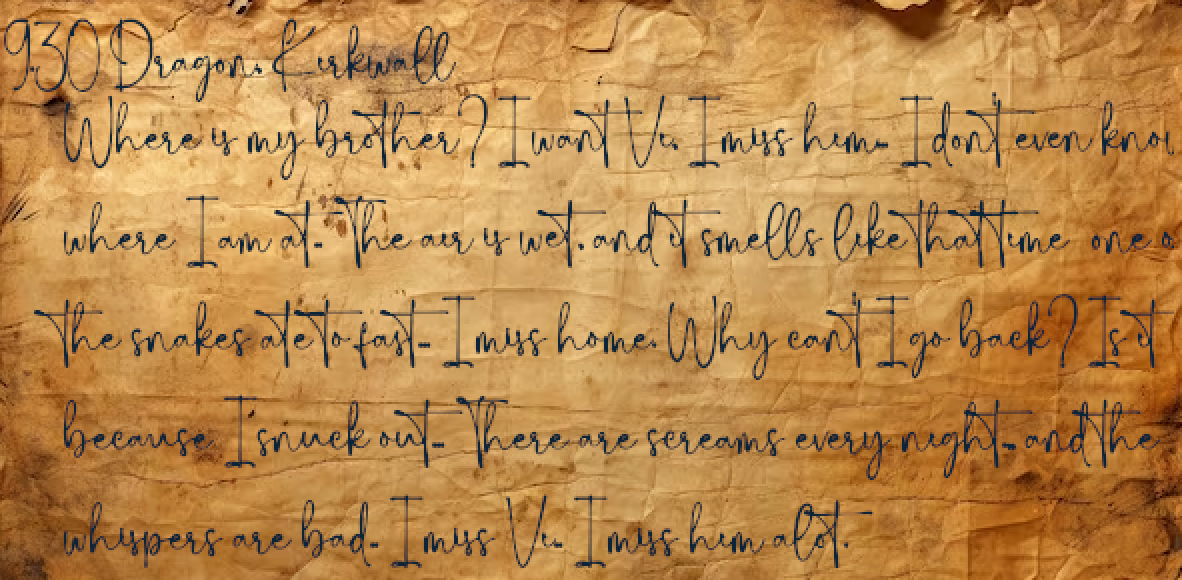 9:30 Dragon, Kirkwall
Where is my brother? I want Vi. I miss him. I don't even know
where I am at. The air is wet, and it smells like that time one o
the snakes ate to fast. I miss home. Why can't I go back? Is it
because I snuck out. There are screams every night, and the
whispers are bad. I miss Vi. I miss him alot.